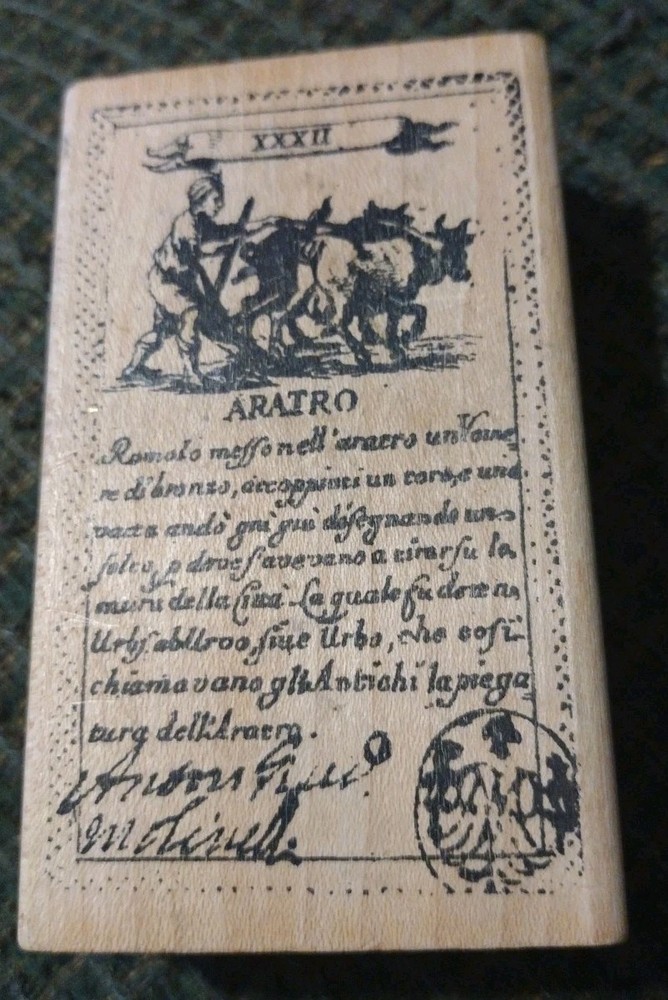 XXXII
ARATRO
Romolo messo nell'aratro un Vome
re di bronzo, accoppiati un toro, e una
vacca andò qui giù disegnando un
solco, p dove s'avevano a tirar su le
mura della Città La quale fu
Urbs ab Urvo, siue Urbo, che cosi
chiamavano gli Antichi la piega
tura dell'Aratro.